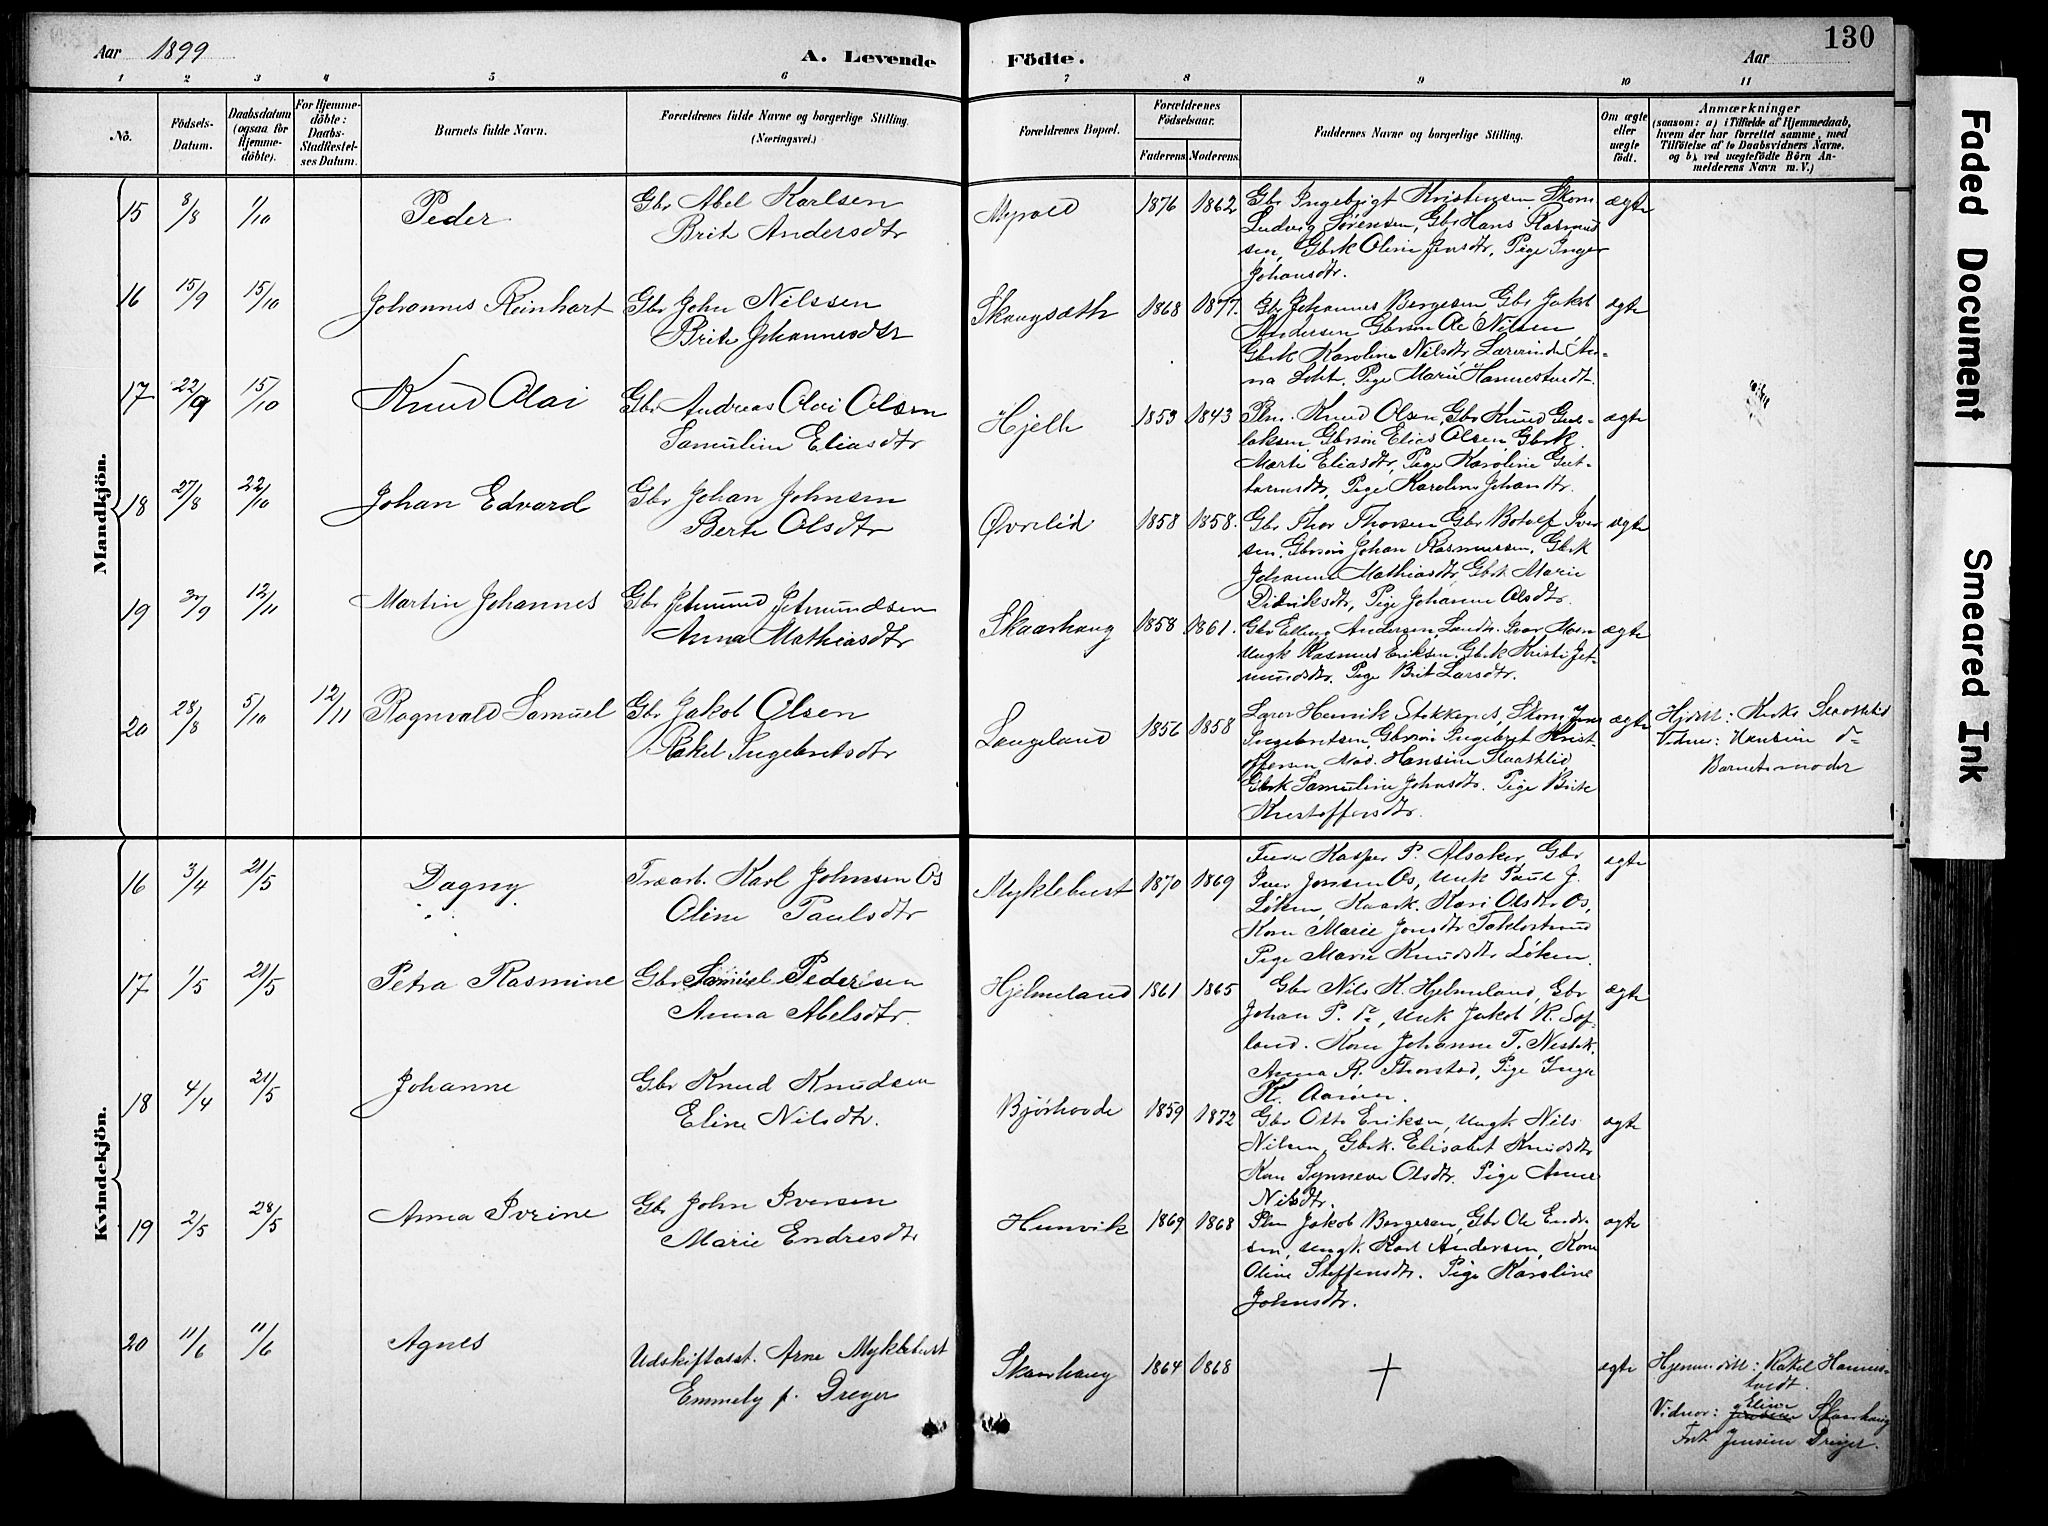 130
Aar 1899
A. Levende Födte.
Aar
1 2 3 4 5 6 7 8 9 10 11
No.
Födsels-Datum.
Daabsdatum (ogsaa for Hjemmedöbte).
For Hjemmedöbte: Daabs-Stadfæstelses Datum.
Barnets fulde Navn.
Forældrenes fulde Navne og borgerlige Stilling. (Næringsvei.)
Forældrenes Bopæl.
Forældrenes Födselsaar.
Faderens. Moderens.
Faddernes Navne og borgerlige Stilling.
Om ægte eller uægte födt.
Anmærkninger
(saasom: a) i Tilfælde af Hjemmedaab, hvem der har forrettet samme, med Tilföielse af to Daabsvidners Navne, og b) ved uægtefödte Börn Anmelderens Navn m. V.)
Mandkjön.
15 8/8 1/10 Peder
Gbr Abel Karlsen
Brite Andersdtr
Myrold 1876 1862
Gbr Ingebrigt Kristensen, Skom
Ludvig Sørensen, Gbr Hans Rasmus
sen, Gbrk Oline Jensdtr, Pige Inger
Johansdtr.
ægte
16 15/9 15/10 Johannes Reinhart
Gbr John Nilssen
Brite Johannesdtr
Skaugsæth 1868 1877.
Gbr Johannes Børgesen, Gbr Jakob
Andersen Gbrsøn Ole Nilsen
Gbrk Karoline Nilsdtr, Lærerinde An-
na Pige Marie Hannestvedt.
ægte
17 22/9 15/10 Knud Olai
Gbr Andreas Olai Olsen
Samuline Eliasdtr
Hjelle 1859 1843
Plm. Knud Olsen, Gbr Knud Gul-
laksen Gbrsøn Elias Olsen, Gbrk
Marte Eliasdtr, Pige Karoline Gut-
tormsdtr, Pige Karoline Johansdtr.
ægte
18 27/8 22/10 Johan Edvard
Gbr Johan Johnsen
Berte Olsdtr
Øvrelid 1858 1858.
Gbr Thor Thorsen Gbr Botolf Iver
sen, Gbrsøn Johan Rasmussen, Gbrk
Johanne Mathiasdtr, Gbrk Marie
Didriksdtr, Pige Johanne Olsdtr.
ægte
19 30/9 12/11 Martin Johannes
Gbr Jetmund Jetmundsen
Anna Mathiasdtr
Skaarhaug 1858 1861.
Gbr Elling Andersen, Landh. Ivar Moen
Ungk Rasmus Eriksen, Gbrk Kristi Jet-
mundsdtr. Pige Brit Larsdtr.
ægte
20 28/8 5/10 12/11 Ragnvald Samuel
Gbr Jakob Olsen
Rakel Ingebretsdtr
Langeland 1856 1858
Lærer Henrik Stokkenes, Skom Jens
Ingebretsen, Gbrsøn Ingebret Krist-
offersen Mad. Hansine Raasklid
Gbrk Samuline Johnsdtr. Pige Brite
Kristoffersdtr.
ægte
Vidne: Hansine do
Barnets moder
Kvindekjön.
16 3/4 21/5 Dagny
Træarb. Karl Johnsen Os
Oline Paulsdtr
Myklebust 1870 1869
Kasper P. Alsaker, Gbr
Iver Jonsen Os, Unk Paul J.
Løken, Kaark. Kari Olsdtr Os,
Kone Marie Jonsdtr Taklostrand
Pige Marie Knudsdtr Løken.
ægte
17 1/5 21/5 Petra Rasmine
Gbr Samuel Pedersen
Anna Abelsdtr.
Hjelmeland 1861 1865
Gbr Nils K. Hjelmeland, Gbr
Johan P. do, Unk Jakob R. Sof-
land. Kone Johanne T. Nestek.
Anna R. Thorstad, Pige Inga
K. Aarøen.
ægte
18 4/4 21/5 Johanne
Gbr Knud Knudsen
Eline Nilsdtr.
Bjørhovde 1859 1872
Gbr Otto Eriksen, Ungk Nils
Nilsen, Gbrk. Elisabet Knudsdtr
Kone Synneve Olsdtr. Pige Anne
Nilsdtr.
ægte
19 2/5 28/5 Anna Ivrine
Gbr John Iversen
Marie Endresdtr
Hunvik 1869 1868
Plm Jakob Børgesen, Gbr Ole Endr-
sen, Ungk. Karl Andersen, Kone
Oline Steffensdtr. Pige Karoline
Johnsdtr.
ægte
20 11/6 11/6 Agnes
Udskiftasst. Arne Myklebust
Emmely f. Dreyer
Skaarhaug 1864 1868
†
ægte
Hjemmedøbt: Rakel Hannes-
tvedt.
Eline
Vidner: Skaarhaug
Frk Jensine Dreyer.
Faded Document
Smeared Ink